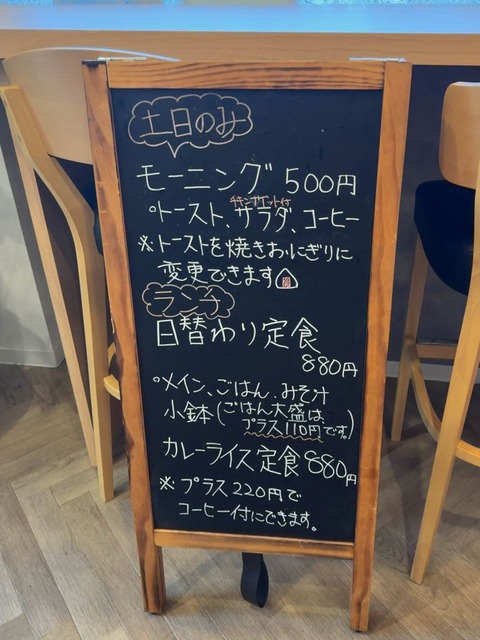 土日のみ
モーニング 500円
チキンナゲット付
°トースト、サラダ、コーヒー
※トーストを焼きおにぎりに
変更できます
ランチ
日替わり定食
880円
°メイン、ごはん、みそ汁
小鉢(ごはん大盛は
プラス110円です。)
カレーライス定食880円
※プラス220円で
コーヒー付にできます。